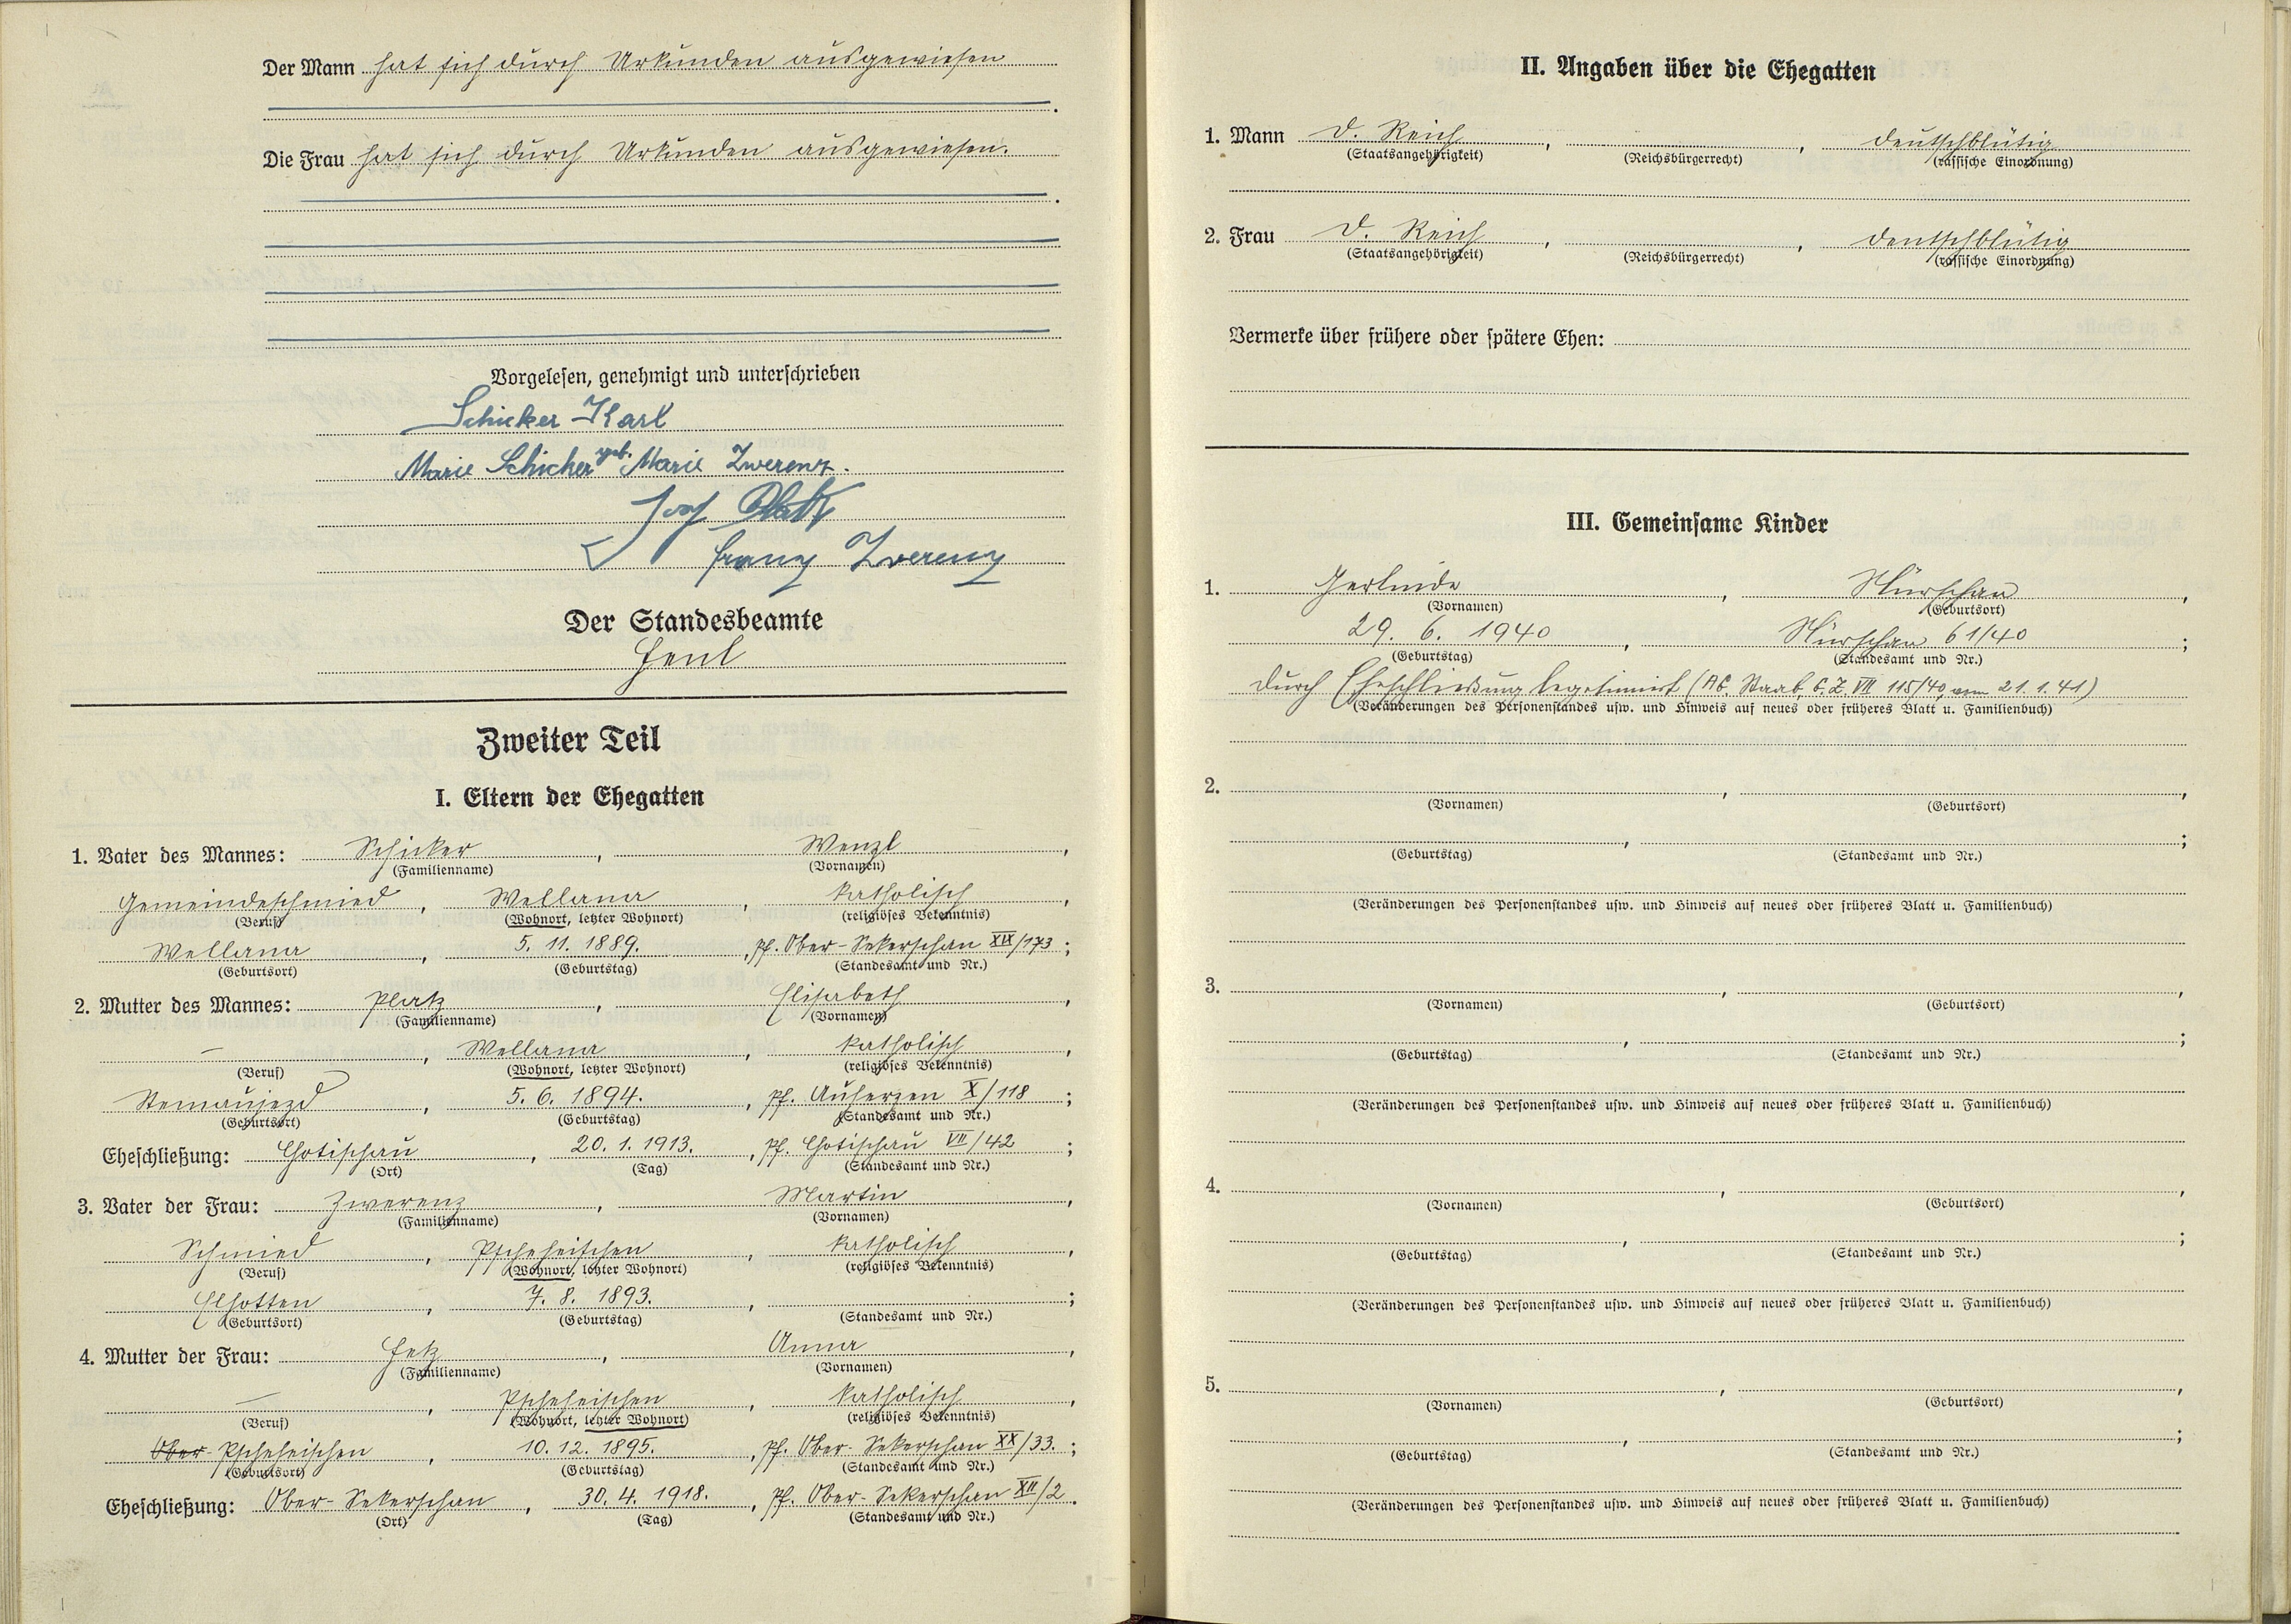 Der Mann hat sich durch Urkunden ausgewiesen
.
Die Frau hat sich durch Urkunden ausgewiesen.
.
Vorgelesen, genehmigt und unterschrieben
Schicker Karl
Marie Schicker geb. Marie Zwerenz.
Josf Platz
Franz Zwerenz
Der Standesbeamte
Henl
Zweiter Teil
I. Eltern der Ehegatten
1. Vater des Mannes: Schicker, Wenzl,
(Familienname) (Vornamen)
Gemeindeschmied, Wellana, katholisch,
(Beruf) (Wohnort, letzter Wohnort) (religiöses Bekenntnis)
Wellana, 5. 11. 1889., pf. Ober-Sekerschan XIX/173;
(Geburtsort) (Geburtstag) (Standesamt und Nr.)
2. Mutter des Mannes: Platz, Elisabeth,
(Familienname) (Vornamen)
—, Wellana, katholisch,
(Beruf) (Wohnort, letzter Wohnort) (religiöses Bekenntnis)
Stemaujezd, 5. 6. 1894., pf. Auherzen X/118;
(Geburtsort) (Geburtstag) (Standesamt und Nr.)
Eheschließung: Chotischau, 20. 1. 1913., pf. Chotischau VII/42;
(Ort) (Tag) (Standesamt und Nr.)
3. Vater der Frau: Zwerenz, Martin,
(Familienname) (Vornamen)
Schmied, Pscheheischen, katholisch,
(Beruf) (Wohnort, letzter Wohnort) (religiöses Bekenntnis)
Elhotten, 7. 8. 1893., ;
(Geburtsort) (Geburtstag) (Standesamt und Nr.)
4. Mutter der Frau: Fetz, Anna,
(Familienname) (Vornamen)
—, Pscheheischen, katholisch,
(Beruf) (Wohnort, letzter Wohnort) (religiöses Bekenntnis)
Ober-Pscheheischen, 10. 12. 1895., pf. Ober-Sekerschan XX/33.;
(Geburtsort) (Geburtstag) (Standesamt und Nr.)
Eheschließung: Ober-Sekerschan, 30. 4. 1918., pf. Ober-Sekerschan XII/2.
(Ort) (Tag) (Standesamt und Nr.)
II. Angaben über die Ehegatten
1. Mann D. Reich, , deutschblütig
(Staatsangehörigkeit) (Reichsbürgerrecht) (rassische Einordnung)
2. Frau D. Reich, , deutschblütig
(Staatsangehörigkeit) (Reichsbürgerrecht) (rassische Einordnung)
Vermerke über frühere oder spätere Ehen:
III. Gemeinsame Kinder
1. Gerlinde, Nürschan,
(Vornamen) (Geburtsort)
29. 6. 1940, Nürschan 61/40;
(Geburtstag) (Standesamt und Nr.)
durch Eheschließung legitimiert (AG. Staab, G.Z. VII 115/40, vom 21. 1. 41)
(Veränderungen des Personenstandes usw. und Hinweis auf neues oder früheres Blatt u. Familienbuch)
2. , ,
(Vornamen) (Geburtsort)
, ;
(Geburtstag) (Standesamt und Nr.)
(Veränderungen des Personenstandes usw. und Hinweis auf neues oder früheres Blatt u. Familienbuch)
3. , ,
(Vornamen) (Geburtsort)
, ;
(Geburtstag) (Standesamt und Nr.)
(Veränderungen des Personenstandes usw. und Hinweis auf neues oder früheres Blatt u. Familienbuch)
4. , ,
(Vornamen) (Geburtsort)
, ;
(Geburtstag) (Standesamt und Nr.)
(Veränderungen des Personenstandes usw. und Hinweis auf neues oder früheres Blatt u. Familienbuch)
5. , ,
(Vornamen) (Geburtsort)
, ;
(Geburtstag) (Standesamt und Nr.)
(Veränderungen des Personenstandes usw. und Hinweis auf neues oder früheres Blatt u. Familienbuch)